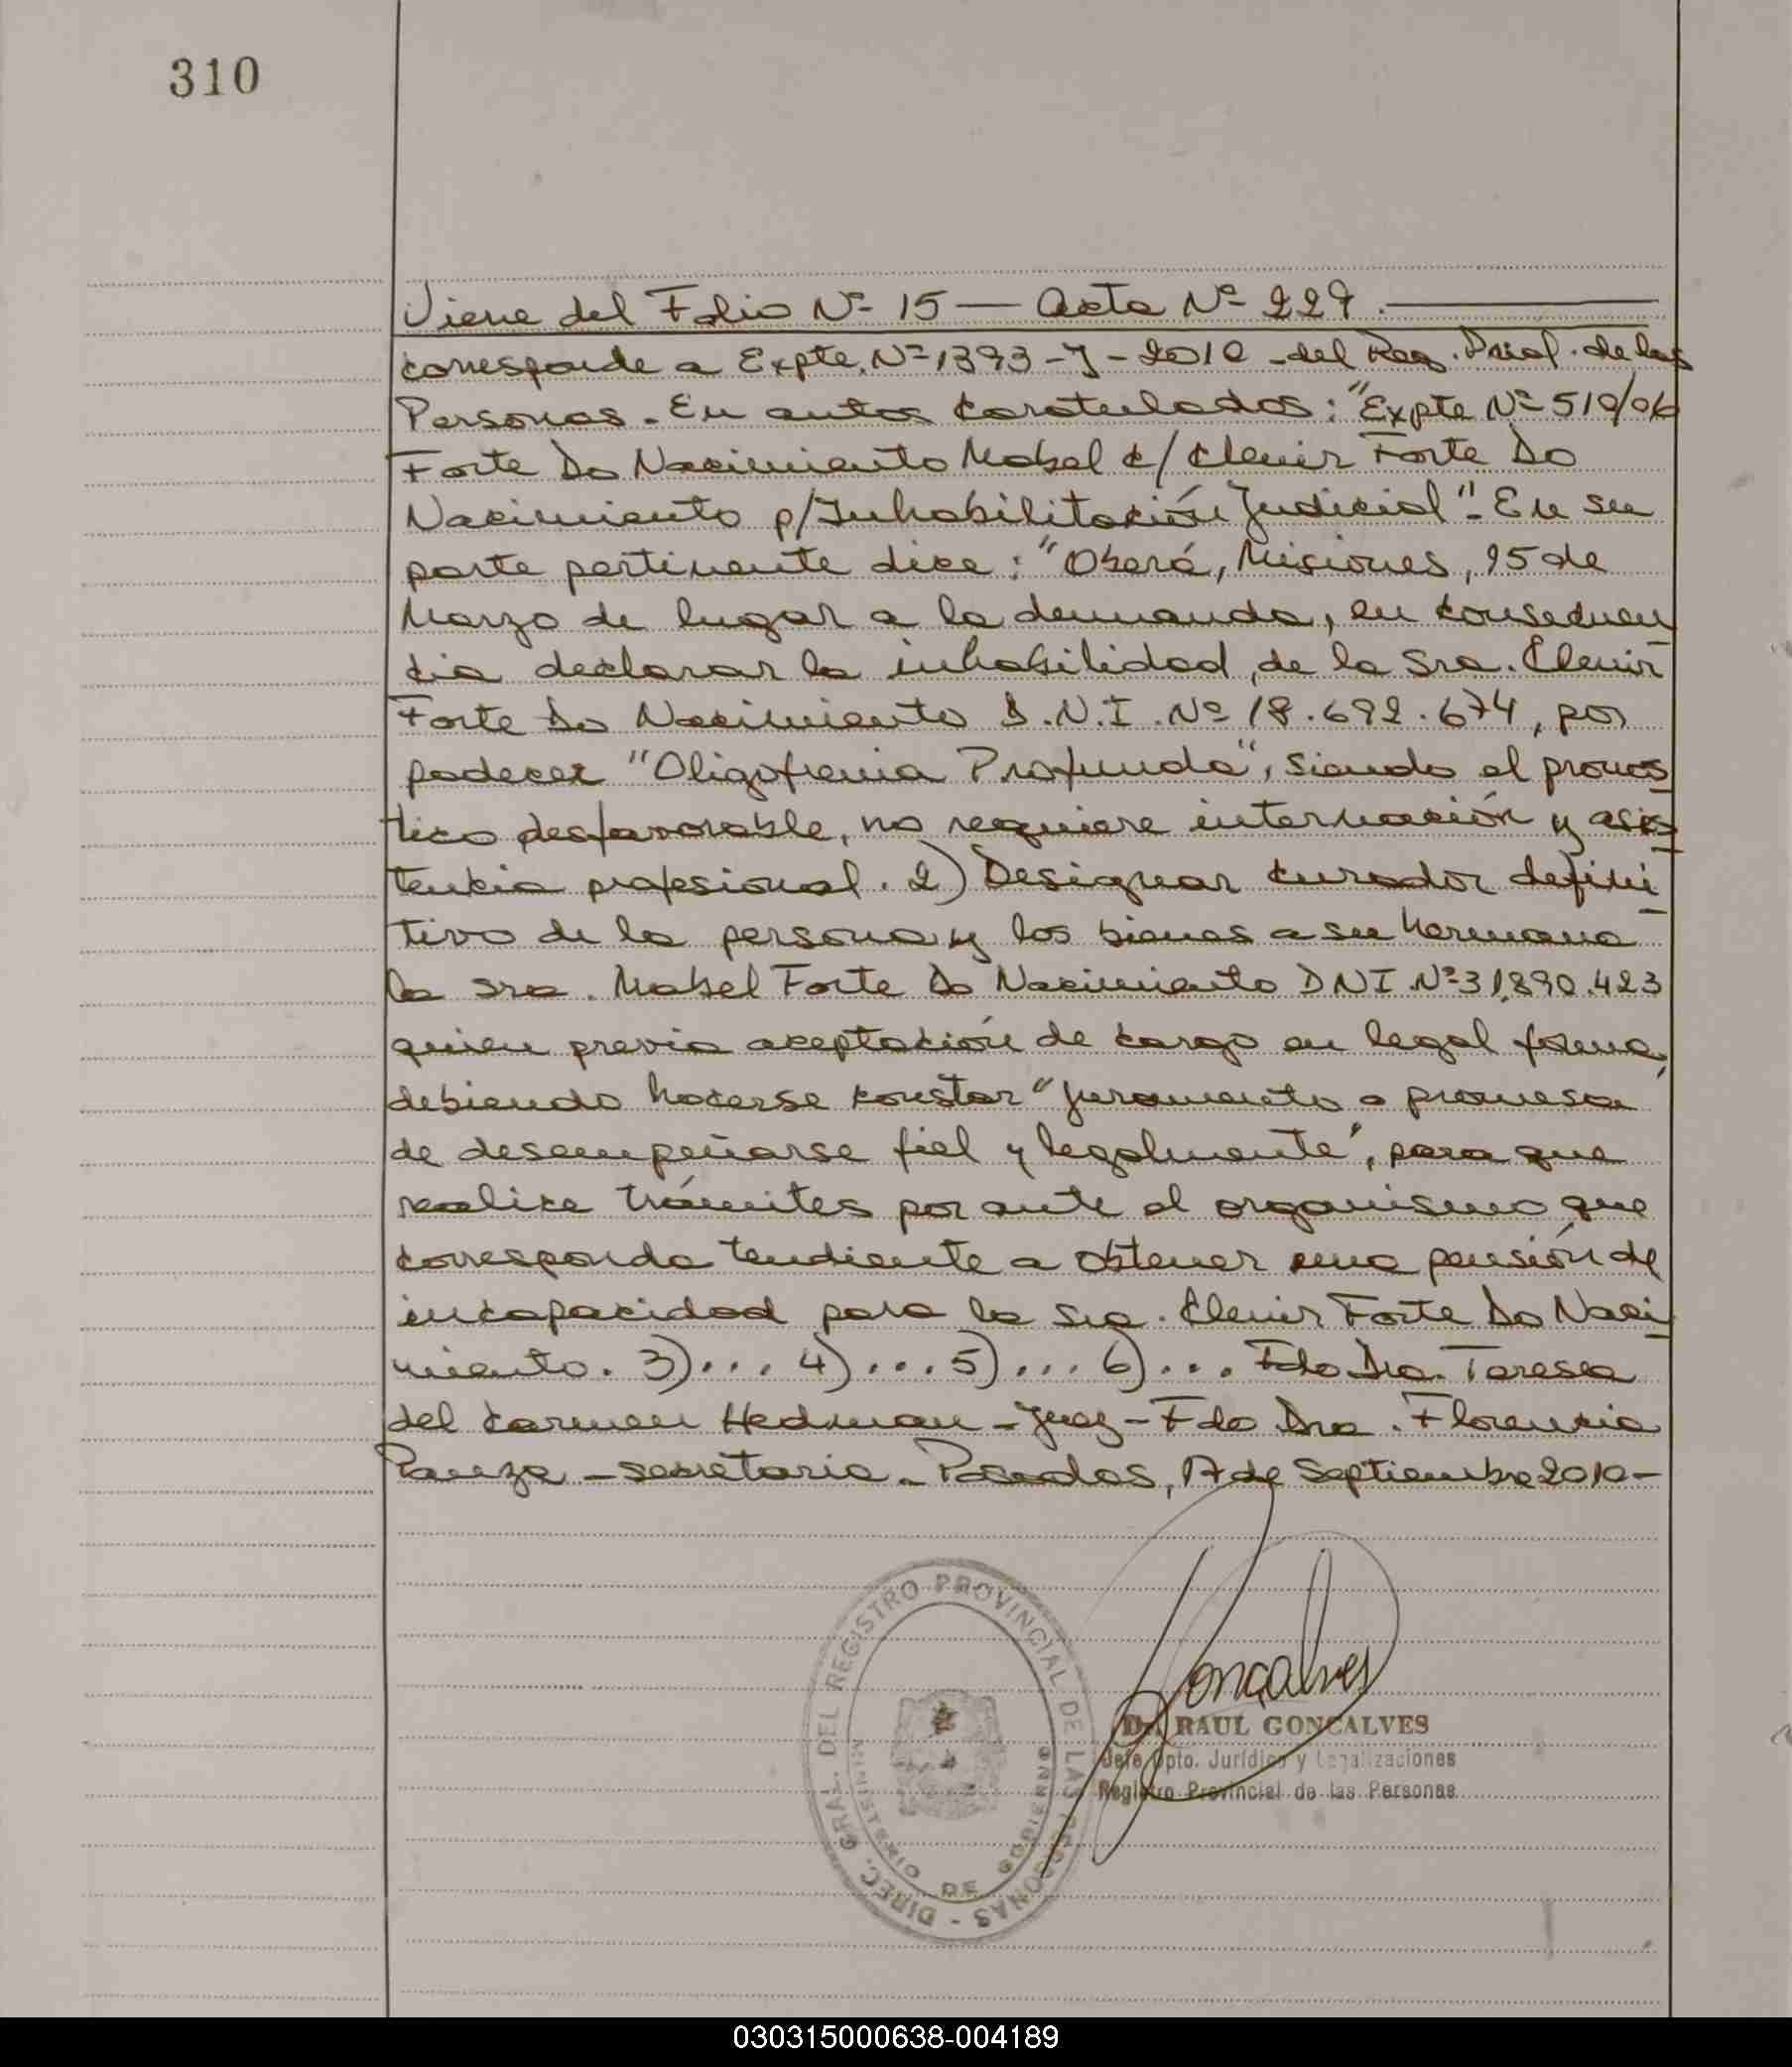 310
Viene del Folio Nº 15 — Acta Nº 229.
corresponde a Expte. Nº 1393-J-2010 - del Reg. Pcial. de las
Personas. En autos caratulados: "Expte Nº 510/06
Forte Do Nacimiento Mabel c/ Clenir Forte Do
Nacimiento p/Inhabilitación Judicial". En su
parte pertinente dice: "Oberá, Misiones, 25 de
Marzo de lugar a la demanda, en consecuen
cia declarar la inhabilidad, de la Sra. Clenir
Forte Do Nacimiento D.N.I. Nº 18.692.674, por
padecer "Oligofrenia Profunda", siendo el pronos
tico desfavorable, no requiere internación y asis
tencia profesional. 2) Designar curador defini
tivo de la persona y los bienes a su hermana
la Sra. Mabel Forte Do Nacimiento DNI Nº 31.890.423
quien previa aceptación de cargo en legal forma,
debiendo hacerse constar "juramento o promesa
de desempeñarse fiel y legalmente", para que
realice trámites por ante el organismo que
corresponda tendiente a obtener una pensión de
incapacidad para la Sra. Clenir Forte Do Naci
miento. 3)... 4)... 5)... 6)... Fdo Dra. Teresa
del Carmen Hedman - Juez - Fdo Dra. Florencia
Panza - secretaria. - Posadas, 17 de Septiembre 2010 -
DIREC. GRAL. DEL REGISTRO PROVINCIAL DE LAS PERSONAS -
MINISTERIO DE GOBIERNO
Gonçalves
Dr. RAUL GONCALVES
Jefe Dpto. Jurídico y Legalizaciones
Registro Provincial de las Personas
030315000638-004189